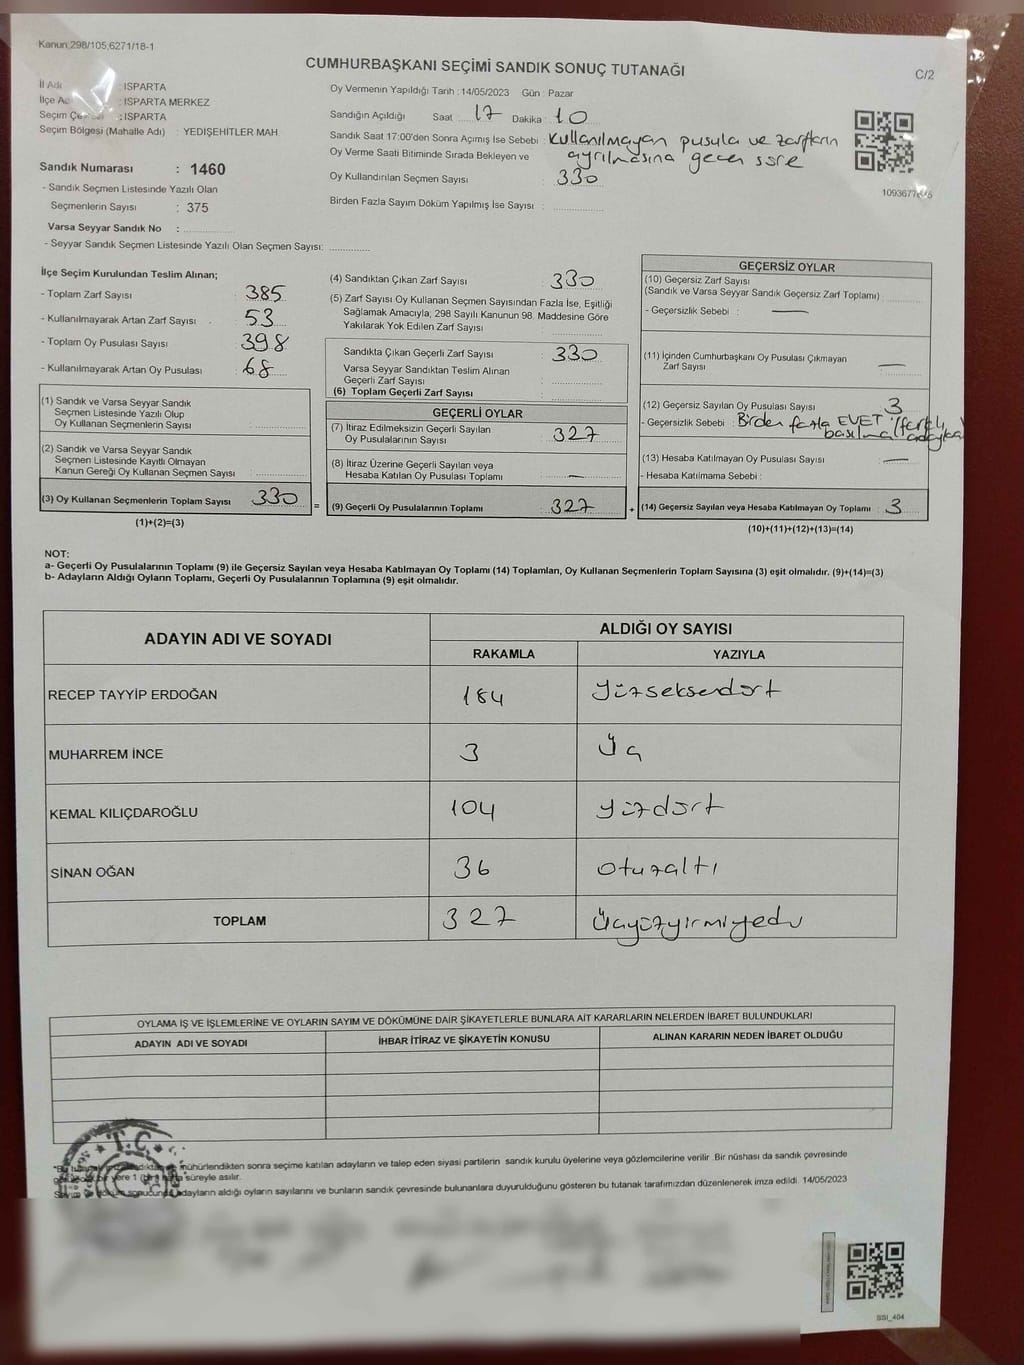 Kanun;298/105;6271/18-1
CUMHURBAŞKANI SEÇİMİ SANDIK SONUÇ TUTANAĞI
C/2
İl Adı : ISPARTA
: ISPARTA MERKEZ
: ISPARTA
Seçim Bölgesi (Mahalle Adı) : YEDİŞEHİTLER MAH.
Oy Vermenin Yapıldığı Tarih : 14/05/2023 Gün : Pazar
Sandığın Açıldığı Saat ..... 17 Dakika : 10
Sandık Saat 17:00'den Sonra Açımış İse Sebebi : Kullanılmayan pusula ve zarfların
Oy Verme Saati Bitiminde Sırada Bekleyen ve ayrılmasına geçen süre
Oy Kullandırılan Seçmen Sayısı : 330
Birden Fazla Sayım Döküm Yapılmış İse Sayısı :
Sandık Numarası : 1460
- Sandık Seçmen Listesinde Yazılı Olan
Seçmenlerin Sayısı : 375
Varsa Seyyar Sandık No :
- Seyyar Sandık Seçmen Listesinde Yazılı Olan Seçmen Sayısı:
İlçe Seçim Kurulundan Teslim Alınan;
- Toplam Zarf Sayısı : 385
- Kullanılmayarak Artan Zarf Sayısı : 53
- Toplam Oy Pusulası Sayısı : 398
- Kullanılmayarak Artan Oy Pusulası : 68
(1) Sandık ve Varsa Seyyar Sandık
Seçmen Listesinde Yazılı Olup
Oy Kullanan Seçmenlerin Sayısı :
(2) Sandık ve Varsa Seyyar Sandık
Seçmen Listesinde Kayıtlı Olmayan
Kanun Gereği Oy Kullanan Seçmen Sayısı :
(3) Oy Kullanan Seçmenlerin Toplam Sayısı 330
(1)+(2)=(3)
=
(4) Sandıktan Çıkan Zarf Sayısı : 330
(5) Zarf Sayısı Oy Kullanan Seçmen Sayısından Fazla İse, Eşitliği
Sağlamak Amacıyla; 298 Sayılı Kanunun 98. Maddesine Göre
Yakılarak Yok Edilen Zarf Sayısı :
Sandıkta Çıkan Geçerli Zarf Sayısı : 330
Varsa Seyyar Sandıktan Teslim Alınan
Geçerli Zarf Sayısı :
(6) Toplam Geçerli Zarf Sayısı :
GEÇERLİ OYLAR
(7) İtiraz Edilmeksizin Geçerli Sayılan
Oy Pusulalarının Sayısı : 327
(8) İtiraz Üzerine Geçerli Sayılan veya
Hesaba Katılan Oy Pusulası Toplamı : —
(9) Geçerli Oy Pusulalarının Toplamı : 327
+
GEÇERSİZ OYLAR
(10) Geçersiz Zarf Sayısı
(Sandık ve Varsa Seyyar Sandık Geçersiz Zarf Toplamı) :
- Geçersizlik Sebebi : —
(11) İçinden Cumhurbaşkanı Oy Pusulası Çıkmayan
Zarf Sayısı : —
(12) Geçersiz Sayılan Oy Pusulası Sayısı : 3
- Geçersizlik Sebebi : Birden fazla EVET (farklı
basılma adaylar
(13) Hesaba Katılmayan Oy Pusulası Sayısı : —
- Hesaba Katılmama Sebebi :
(14) Geçersiz Sayılan veya Hesaba Katılmayan Oy Toplamı : 3
(10)+(11)+(12)+(13)=(14)
NOT:
a- Geçerli Oy Pusulalarının Toplamı (9) ile Geçersiz Sayılan veya Hesaba Katılmayan Oy Toplamı (14) Toplamları, Oy Kullanan Seçmenlerin Toplam Sayısına (3) eşit olmalıdır. (9)+(14)=(3)
b- Adayların Aldığı Oyların Toplamı, Geçerli Oy Pusulalarının Toplamına (9) eşit olmalıdır.
ADAYIN ADI VE SOYADI
ALDIĞI OY SAYISI
RAKAMLA YAZIYLA
RECEP TAYYİP ERDOĞAN 184 Yüzseksendört
MUHARREM İNCE 3 Üç
KEMAL KILIÇDAROĞLU 104 Yüzdört
SİNAN OĞAN 36 otuzaltı
TOPLAM 327 Üçyüzyirmiyedi
OYLAMA İŞ VE İŞLEMLERİNE VE OYLARIN SAYIM VE DÖKÜMÜNE DAİR ŞİKAYETLERLE BUNLARA AİT KARARLARIN NELERDEN İBARET BULUNDUKLARI
ADAYIN ADI VE SOYADI İHBAR İTİRAZ VE ŞİKAYETİN KONUSU ALINAN KARARIN NEDEN İBARET OLDUĞU
T.C.
mühürlendikten sonra seçime katılan adayların ve talep eden siyasi partilerin sandık kurulu üyelerine veya gözlemcilerine verilir .Bir nüshası da sandık çevresinde
yere 1 (bir) hafta süreyle asılır.
döküm sonucunda adayların aldığı oyların sayılarını ve bunların sandık çevresinde bulunanlara duyurulduğunu gösteren bu tutanak tarafımızdan düzenlenerek imza edildi. 14/05/2023
SSI_404